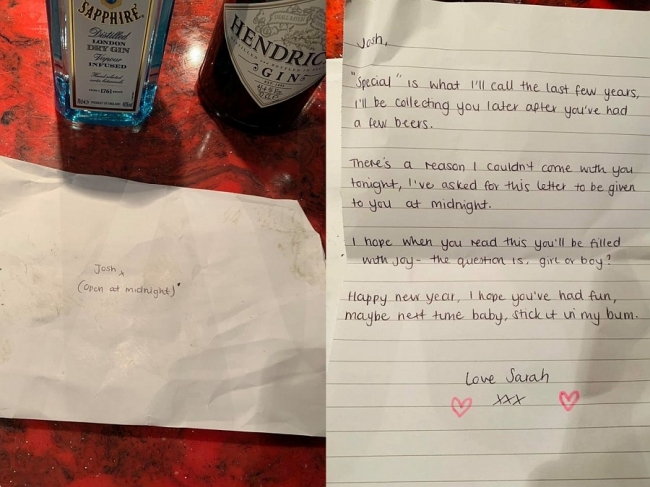 SAPPHIRE
Distilled
LONDON
DRY GIN
Vapour
INFUSED
1761
HENDRIC
GIN
Josh x
(open at midnight)
Josh,
"Special" is what I'll call the last few years,
I'll be collecting you later after you've had
a few beers.
There's a reason I couldn't come with you
tonight, I've asked for this letter to be given
to you at midnight.
I hope when you read this you'll be filled
with joy - the question is, girl or boy?
Happy new year, I hope you've had fun,
maybe next time baby, stick it in my bum.
Love Sarah
xxx